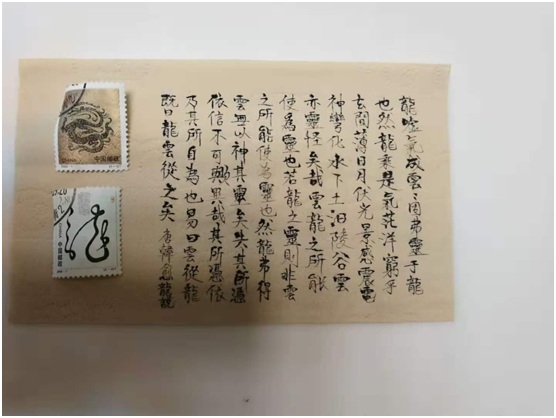 龍噓氣成雲〻固弗靈于龍
也然龍乘是氣茫洋窮乎
玄間薄日月伏光景感震電
神變化水下土汩陵谷雲
亦靈怪矣哉雲龍之所能
使為靈也若龍之靈則非雲
之所能使為靈也然龍弗得
雲無以神其靈矣失其所憑
依信不可歟異哉其所憑依
乃其所自為也易曰雲從龍
既曰龍雲從之矣 唐韓愈龍說
中国邮政
中国邮政